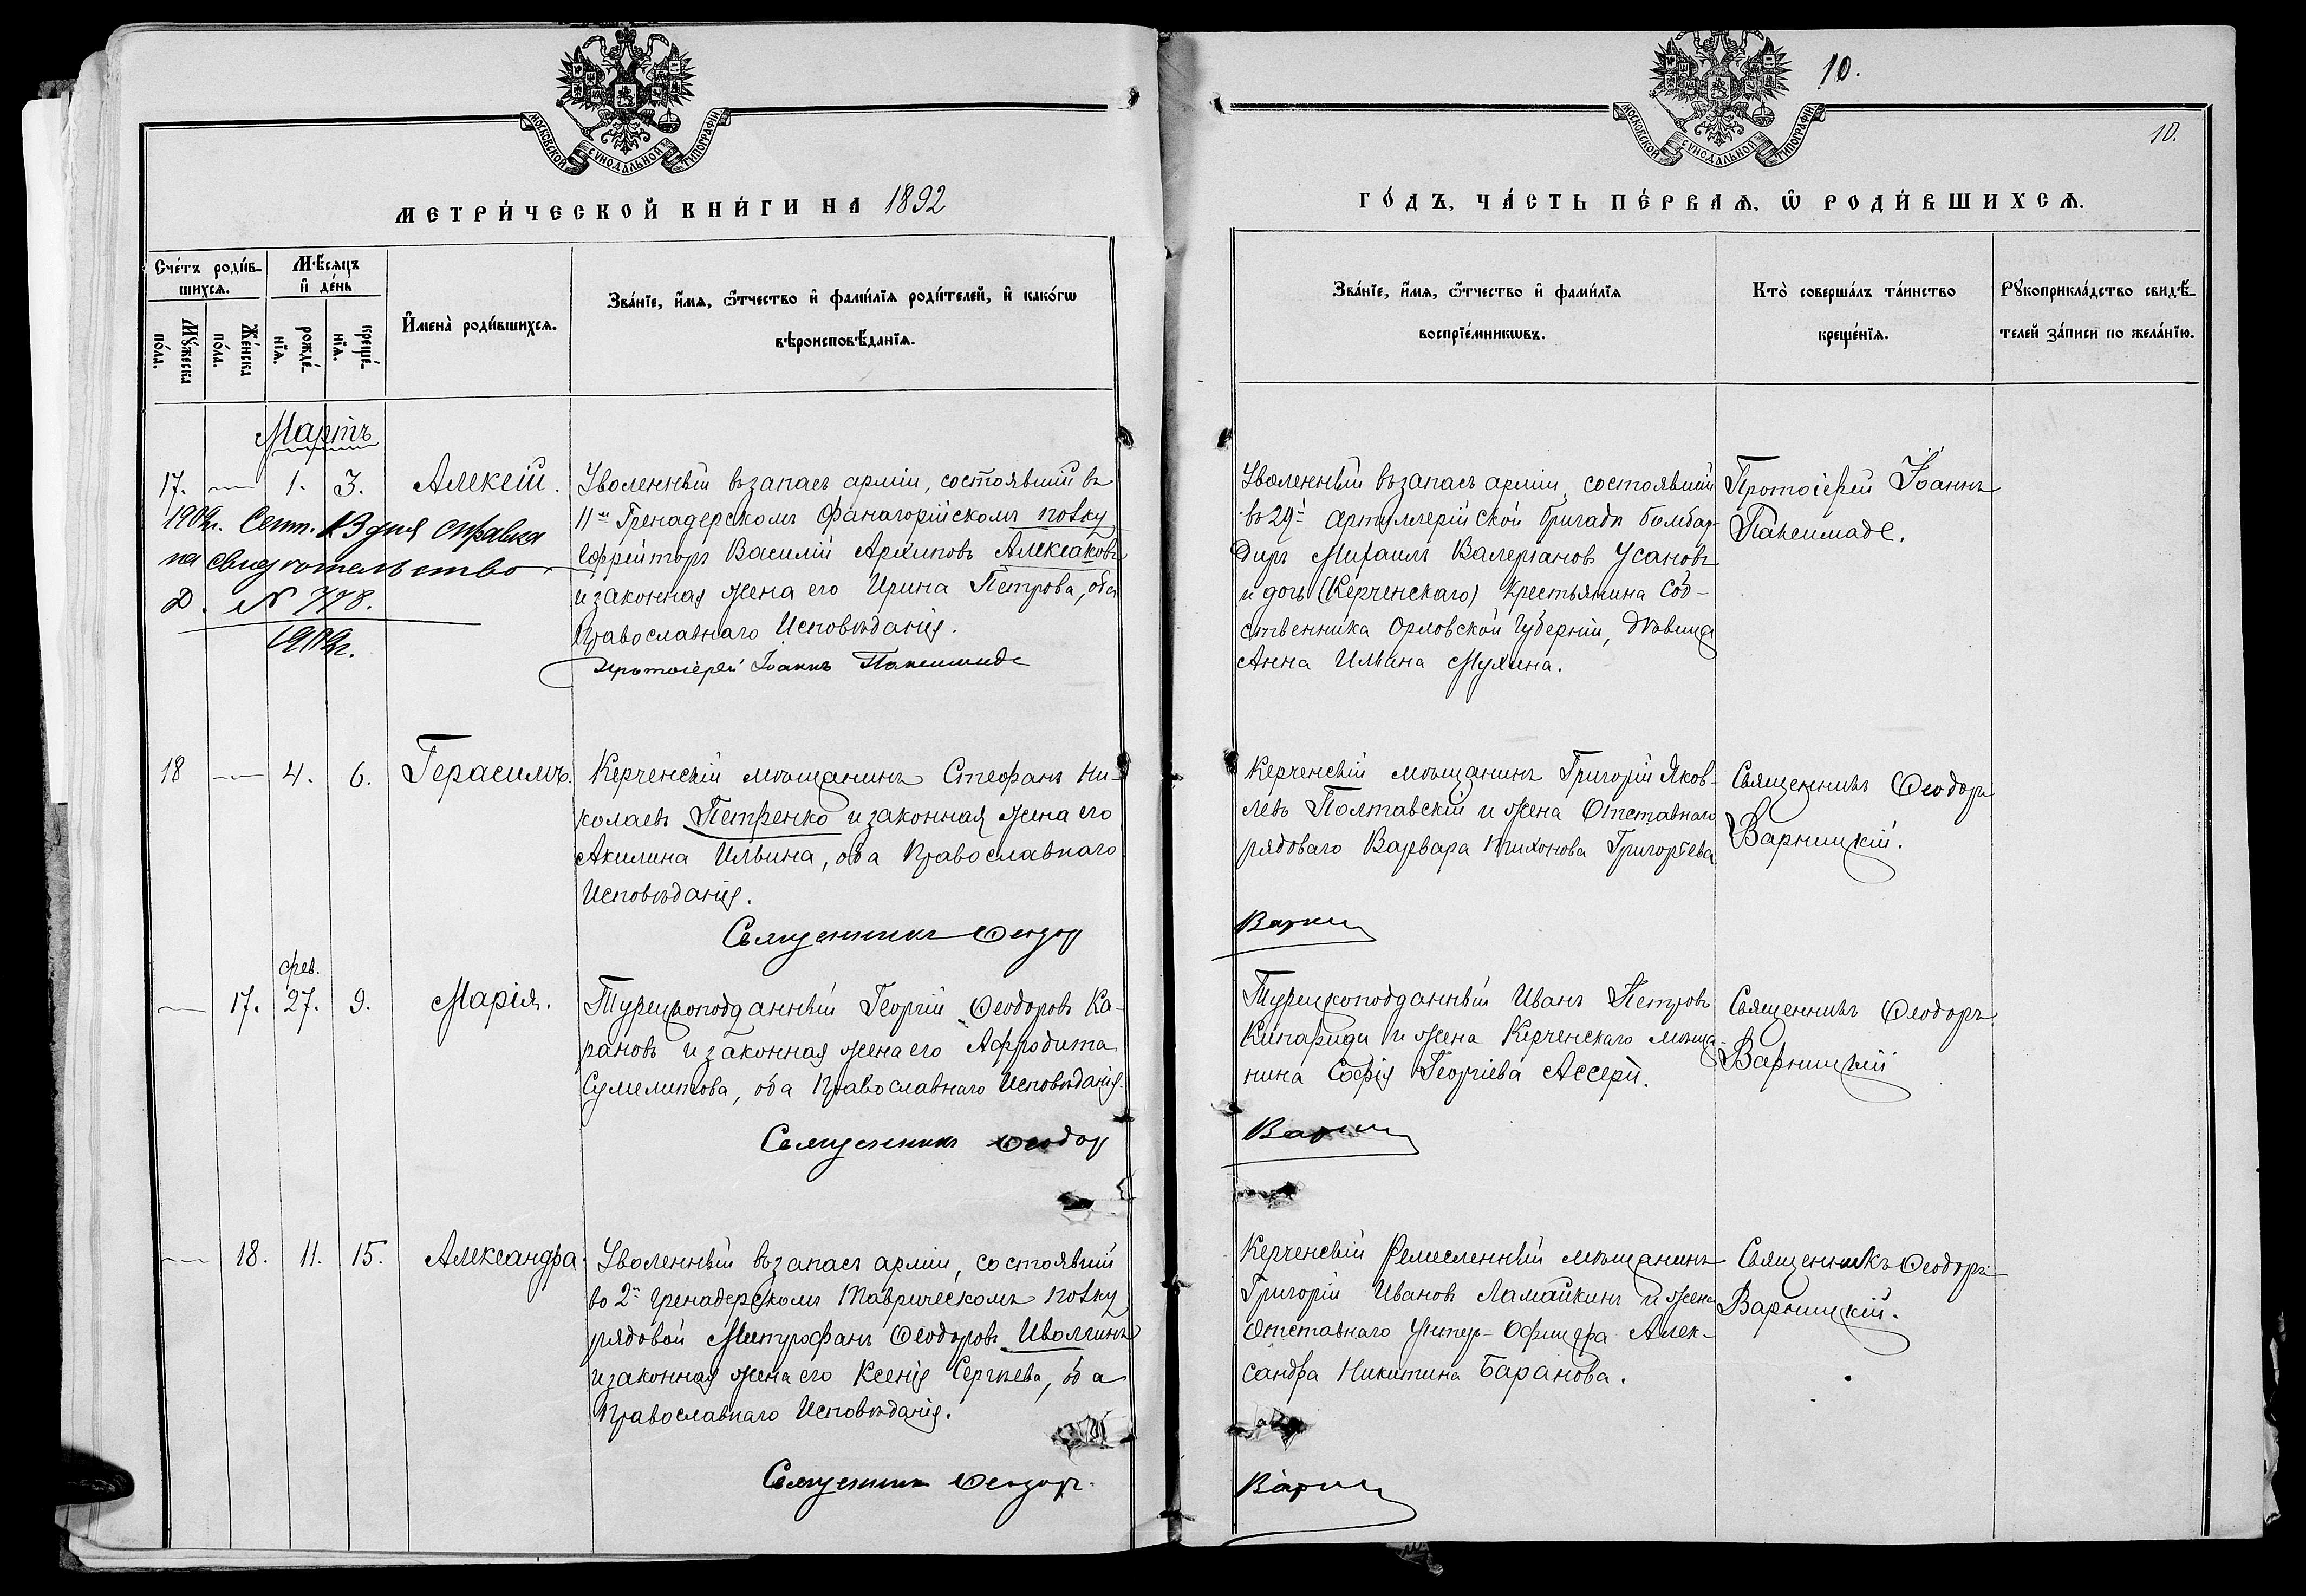 МОСКОВСКОЙ СѴНОДАЛЬНОЙ ТИПОГРАФІИ
МЕТРИ́ЧЕСКОЙ КНИ́ГИ НА 1892
Сче́тъ роди́в-
шихсѧ.
Мѣ́сяцъ
и҆ де́нь
Мꙋ́жеска
по́ла.
Же́нска
по́ла.
рожде́-
нїѧ.
креще́-
нїѧ.
И҆мена̀ роди́вшихсѧ.
Зва́нїе, и҆́мѧ, ѻ҆́тчество и҆ фами́лїѧ роди́телей, и҆ како́гѡ
вѣроисповѣ́данїѧ.
Мартъ
17. — 1. 3. Алексій.
Уволенный въ запасъ арміи, состоявшій въ
11м Гренадерскомъ Фанагорійскомъ полку
Ефрейторъ Василій Архиповъ Алексаковъ
и законная жена его Ирина Петрова, оба
Православнаго Исповѣданія.
Протоіерей Іоаннъ Паксимаде
1909г. Сент. 13 дня справка
на свидѣтельство
Д. N 778.
1909г.
18 — 4. 6. Герасимъ.
Керченскій мѣщанинъ Стефанъ Ни-
колаевъ Петренко и законная жена его
Акилина Ильина, оба Православнаго
Исповѣданія.
Священникъ Ѳеодор
фев.
— 17. 27. 9. Марія.
Турецкоподданный Георгій Ѳеодоровъ Ка-
рановъ и законная жена его Афродита
Сумелитова, оба Православнаго Исповѣданія.
Священникъ Ѳеодор
— 18. 11. 15. Александра.
Уволенный въ запасъ арміи, состоявшій
во 2м Гренадерскомъ Таврическомъ полку
рядовой Митрофанъ Ѳеодоровъ Иволгинъ
и законная жена его Ксенія Сергѣева, оба
Православнаго Исповѣданія.
Священникъ Ѳеодоръ.
10.
МОСКОВСКОЙ СѴНОДАЛЬНОЙ ТИПОГРАФІИ
10.
ГО́ДЪ, ЧА́СТЬ ПЕ́РВАѦ, Ѡ҆ РОДИ́ВШИХСѦ.
Зва́нїе, и҆́мѧ, ѻ҆́тчество и҆ фами́лїѧ
воспрїе́мникѡвъ.
Кто̀ соверша́лъ та́инство
креще́нїѧ.
Рꙋкоприкла́дство свидѣ́-
телей за́писи по жела́нїю.
Уволенный въ запасъ арміи, состоявшій
въ 29й Артиллерійской бригадѣ бомбар-
диръ Михаилъ Валеріановъ Усановъ
и дочь (Керченскаго) Крестьянина Соб-
ственника Орловской Губерніи, дѣвица
Анна Ильина Мухина.
Протоіерей Іоаннъ
Паксимаде.
Керченскій мѣщанинъ Григорій Яков-
левъ Полтавскій и жена Отставнаго
рядоваго Варвара Тихонова Григорьева
Священникъ Ѳеодоръ
Варницкій.
Варни
Турецкоподданный Иванъ Петровъ
Кипариди и жена Керченскаго мѣща-
нина Софія Георгіева Ассери.
Священникъ Ѳеодоръ
Варницкій
Варни
Керченскій Ремесленный мѣщанинъ
Григорій Ивановъ Ламайкинъ и жена
Отставнаго Унтеръ-Офицера Алек-
сандра Никитина Баранова.
Священникъ Ѳеодоръ
Варницкій.
Варни